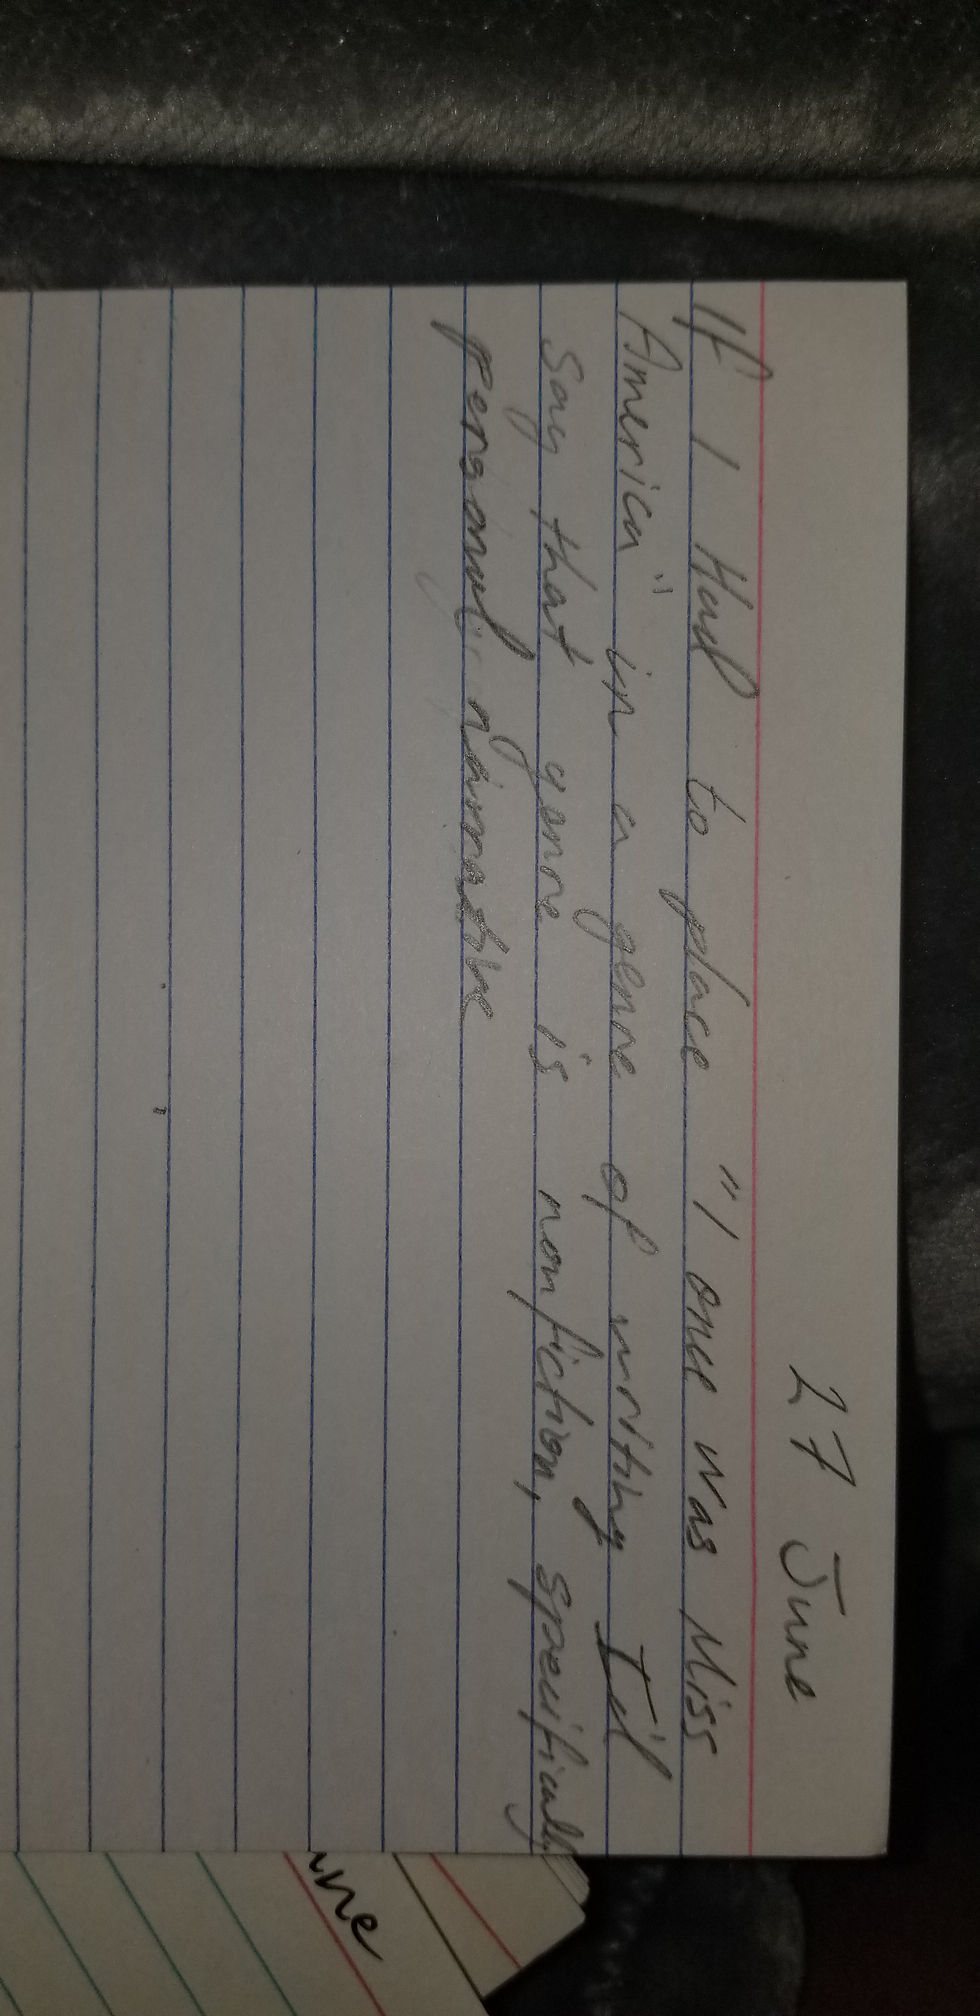 27 June
If I Had to place "I once was Miss
America" in a genre of writing I'd
say that genre is nonfiction, specifically
personal narrative
une